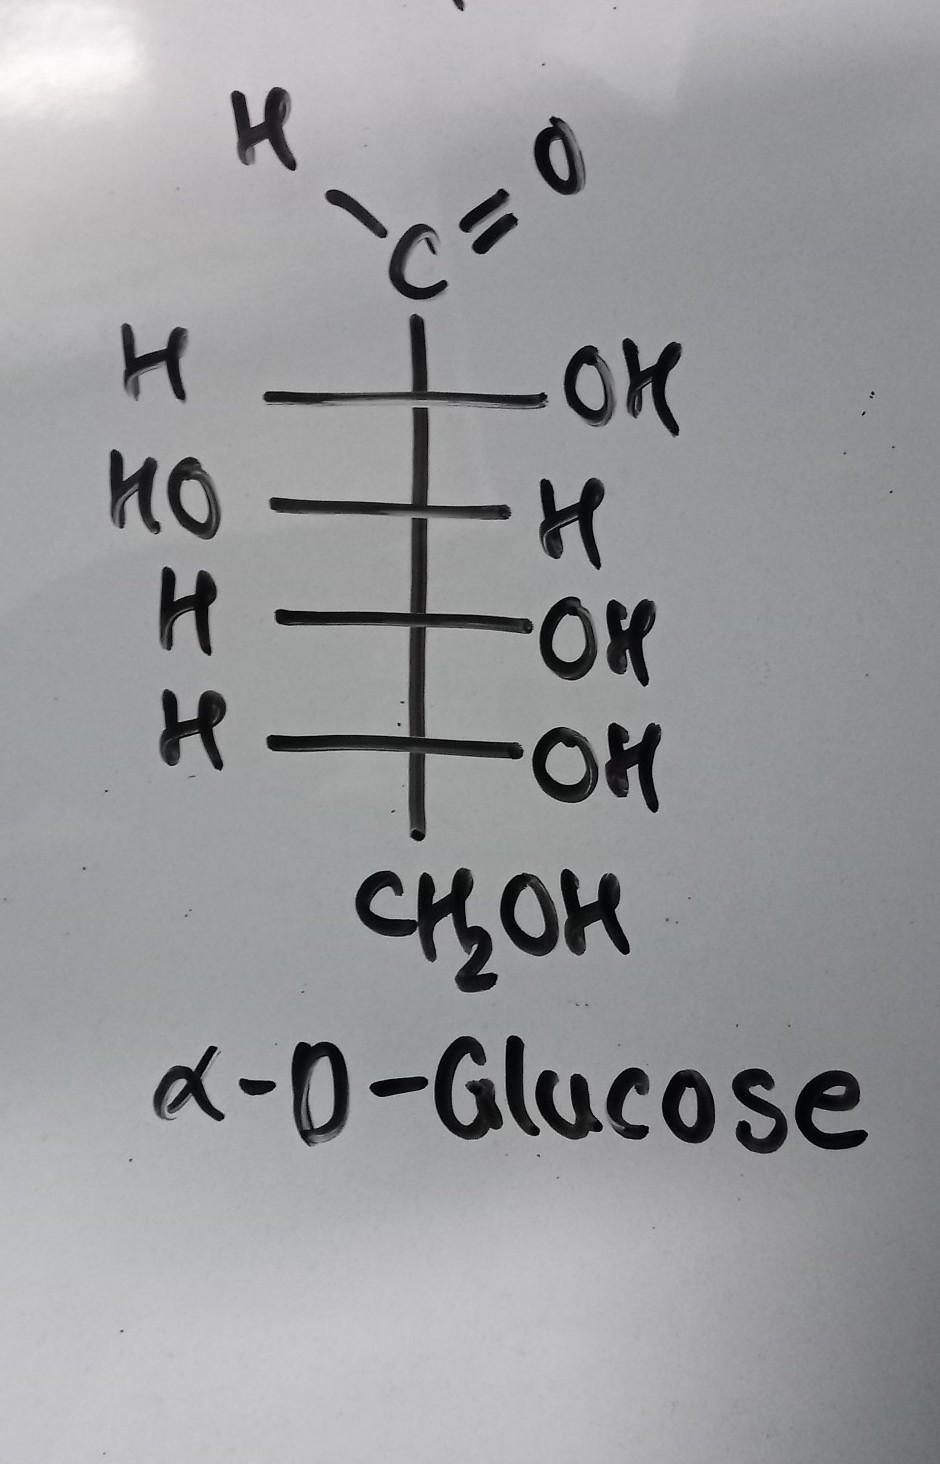 H O
C =
H OH
HO H
H OH
H OH
CH₂OH
α-D-Glucose